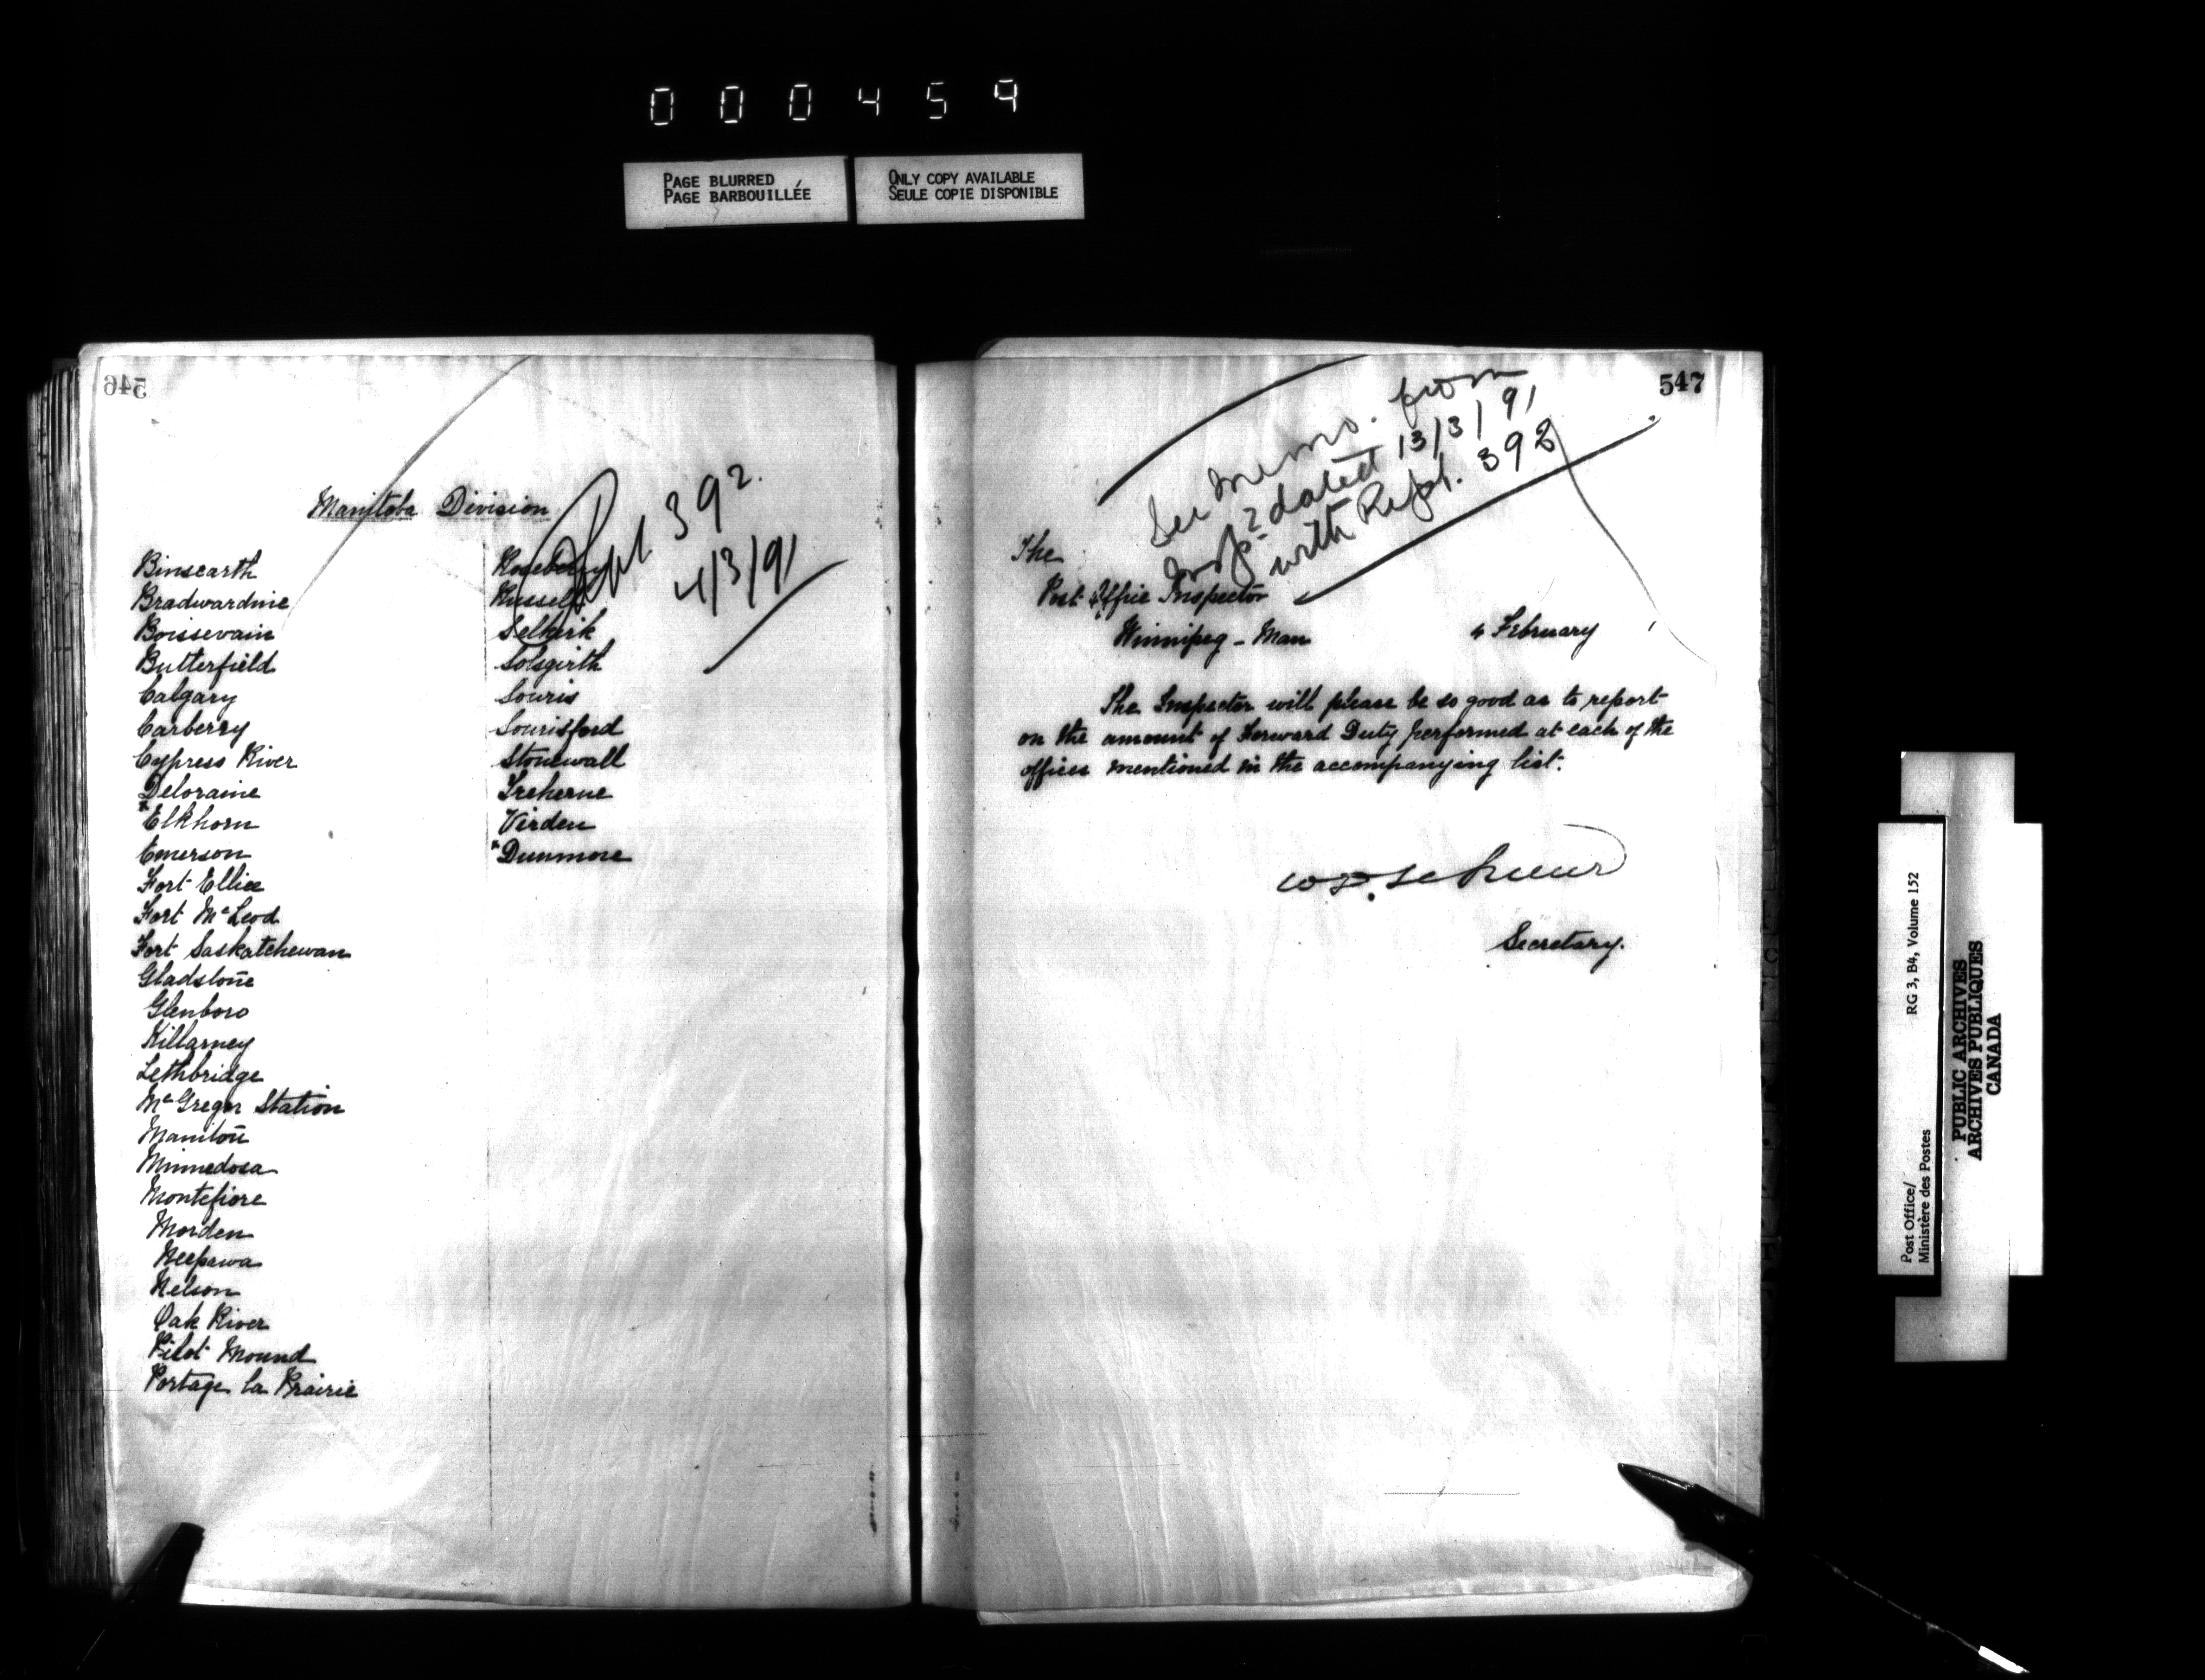 000459
PAGE BLURRED
PAGE BARBOUILLÉE
ONLY COPY AVAILABLE
SEULE COPIE DISPONIBLE
546
Manitoba Division
Rept. 392.
4/3/91
Binscarth
Bradwardine
Boissevain
Butterfield
Calgary
Carberry
Cypress River
Deloraine
x Elkhorn
Emerson
Fort Ellice
Fort McLeod
Fort Saskatchewan
Gladstone
Glenboro
Killarney
Lethbridge
McGregor Station
Manitou
Minnedosa
Montefiore
Morden
Neepawa
Nelson
Oak River
Pilot Mound
Portage la Prairie
Roseberry
Russell
Selkirk
Solsgirth
Souris
Sourisford
Stonewall
Treherne
Virden
x Dunmore
547
See Memo. from
Inspr dated 13/3/91
with Rept. 392
The
Post Office Inspector
Winnipeg - Man
4 February
The Inspector will please be so good as to report
on the amount of Forward Duty performed at each of the
offices mentioned in the accompanying list.
Secretary.
Post Office/
Ministère des Postes
RG 3, B4, Volume 152
PUBLIC ARCHIVES
ARCHIVES PUBLIQUES
CANADA